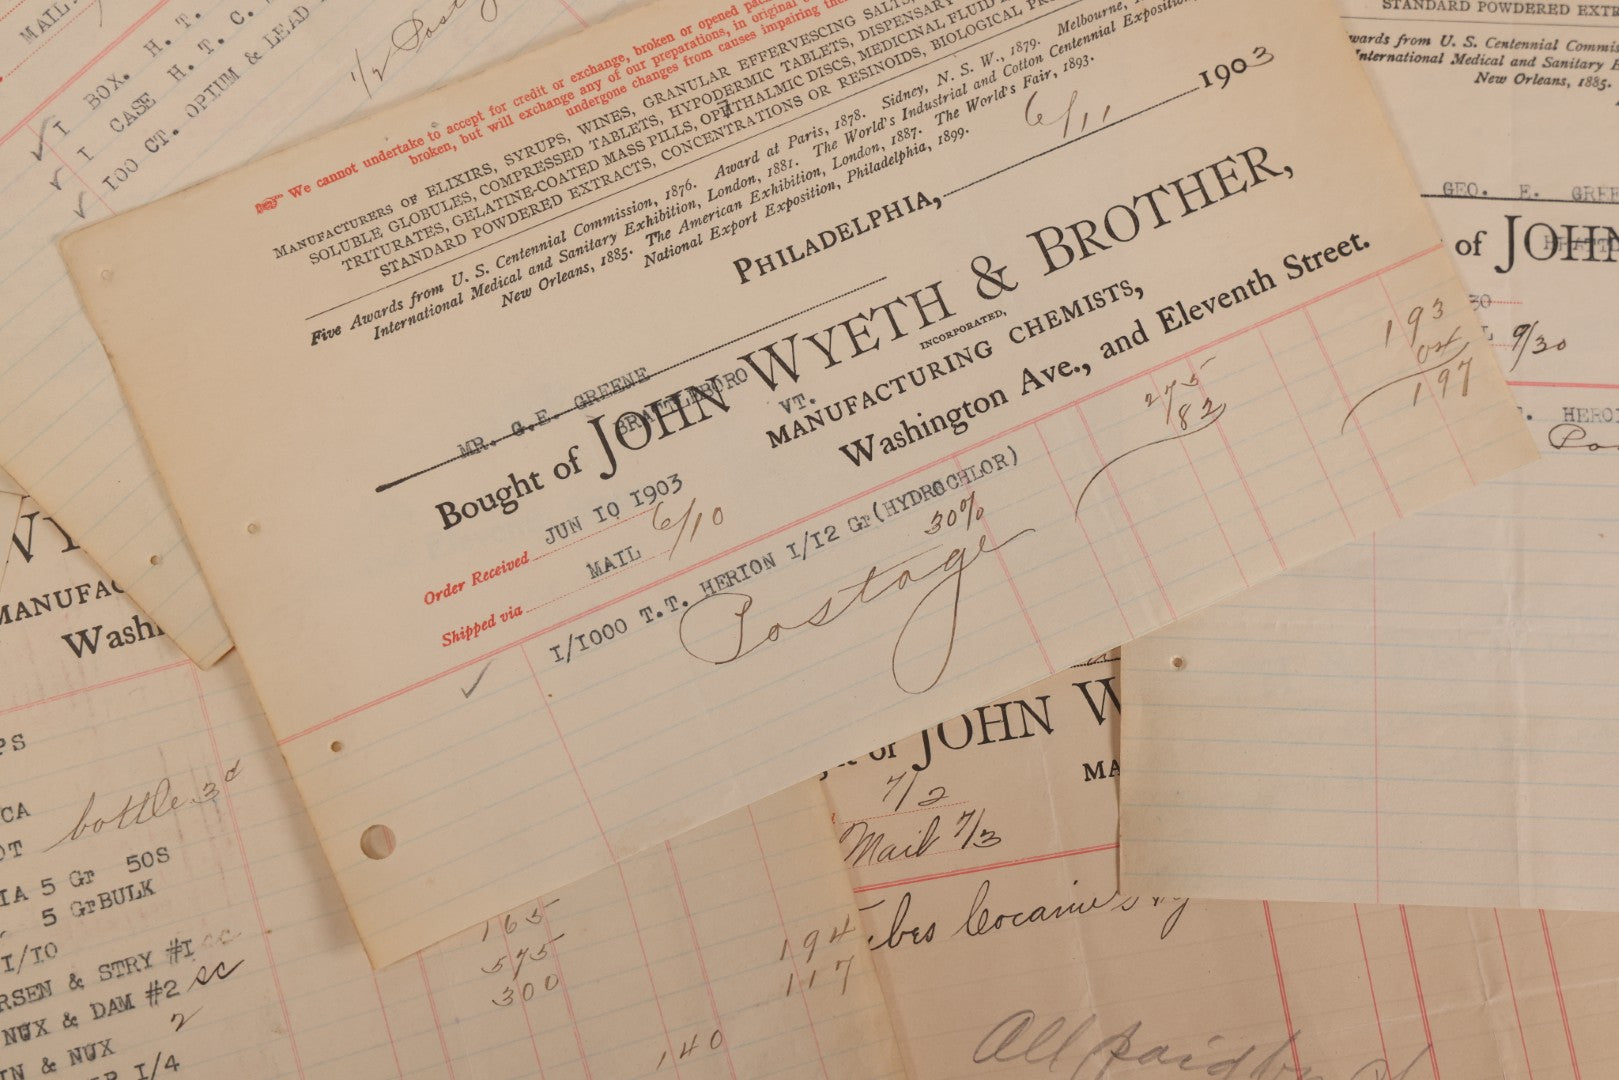 MAIL.
1 BOX. H. T.
1 CASE H. T. C.
100 CT. OPIUM & LEAD
1/2
We cannot undertake to accept for credit or exchange, broken or opened
broken, but will exchange any of our preparations, in original
undergone changes from causes impairing
MANUFACTURERS OF ELIXIRS, SYRUPS, WINES, GRANULAR EFFERVESCING SALTS,
SOLUBLE GLOBULES, COMPRESSED TABLETS, HYPODERMIC TABLETS, DISPENSARY
TRITURATES, GELATINE-COATED MASS PILLS, OPHTHALMIC DISCS, MEDICINAL FLUID
STANDARD POWDERED EXTRACTS, CONCENTRATIONS OR RESINOIDS, BIOLOGICAL
Five Awards from U. S. Centennial Commission, 1876. Award at Paris, 1878. Sidney, N. S. W., 1879. Melbourne,
International Medical and Sanitary Exhibition, London, 1881. The World's Industrial and Cotton Centennial Exposition,
New Orleans, 1885. The American Exhibition, London, 1887. The World's Fair, 1893.
National Export Exposition, Philadelphia, 1899.
PHILADELPHIA, 6/11 1903
MR. G.E. GREENE
BRATTLEBORO VT.
Bought of JOHN WYETH & BROTHER,
INCORPORATED,
MANUFACTURING CHEMISTS,
Washington Ave., and Eleventh Street.
Order Received JUN 10 1903
Shipped via MAIL 6/10
1/1000 T.T. HERION 1/12 Gr(HYDROCHLOR) 275 193
30% 82 04
Postage 197
STANDARD POWDERED
wards from U. S. Centennial
International Medical and Sanitary
New Orleans, 1885.
GEO. E. GREE
of JOHN
30
9/30
HEROI
MANUFAC
Washi
PS
CA
OT bottle 3d
IA 5 Gr 50S
5 Gr BULK
1/10
RSEN & STRY #1 cc
NUX & DAM #2 sc
2
IN & NUX
1/4
165
575 194
300 117
140
of JOHN W
MA
7/2
Mail 7/3
bes Cocaine
All paid by